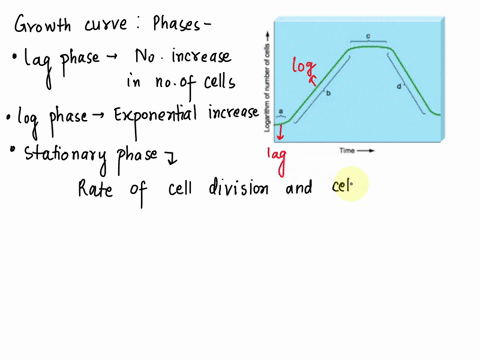 Growth curve : Phases -
• Lag phase → No. increase
in no. of cells
• log phase → Exponential increase
• Stationary phase ↴
Rate of cell division and cel
Logarithm of number of cells →
a
b
c
d
log
lag
Time →